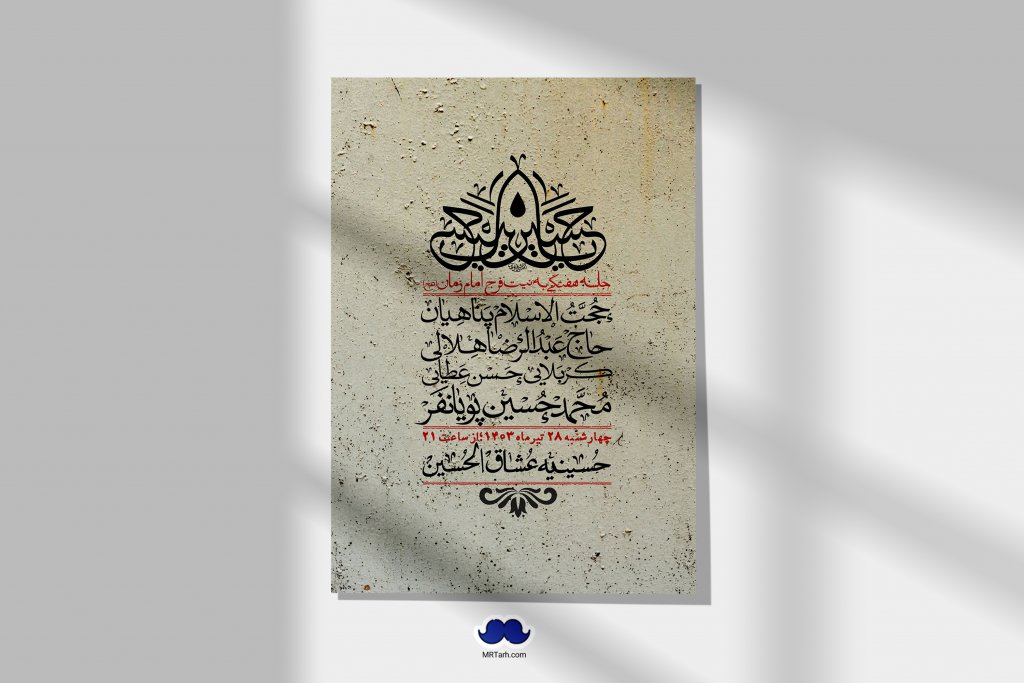 جلسه هفتگی به نیت فرج امام زمان (عج)
حُجَّتُ الاسلام پَناهیان
حاج عَبدُالرّضا هِلالی
کربلایی حَسَن عَطایی
مُحَمَّدحُسین پویانفَر
چهارشنبه ۲۸ تیرماه ۱۴۰۳ | از ساعت ۲۱
حُسینیه عُشاق الحُسین
MRTarh.com